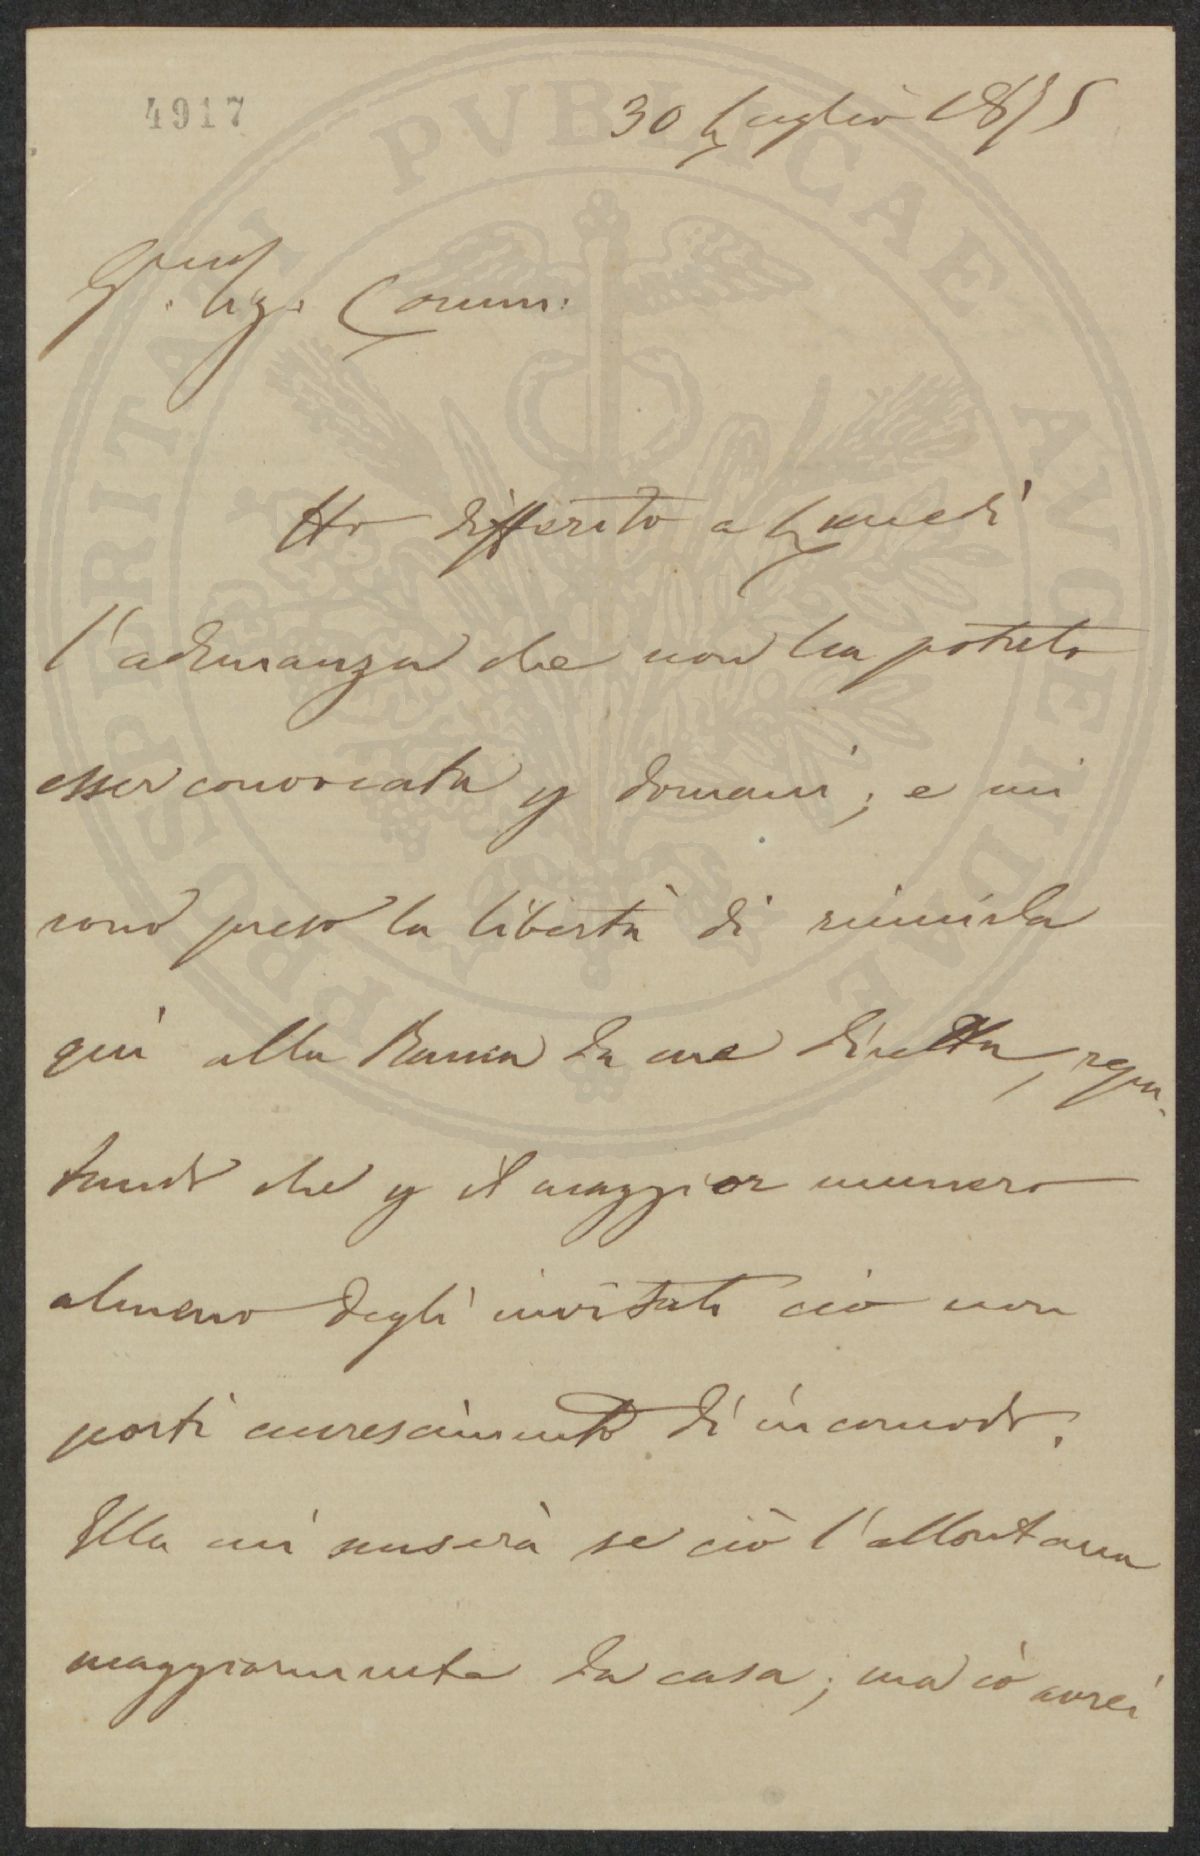 4917
30 Luglio 1875
Sig. Comm:
Ho differito a Lunedì
l'adunanza che non ha potuto
esser convocata p domani; e mi
sono preso la libertà di riunirla
quì alla Banca da me diretta, repu-
tando che p il maggior numero
almeno degli invitati ciò non
porti accrescimento di incomodo.
Ella mi scuserà se ciò l'allontana
maggiormente da casa; ma io avrei
PROSPERITATI PVBLICAE AVGENDAE